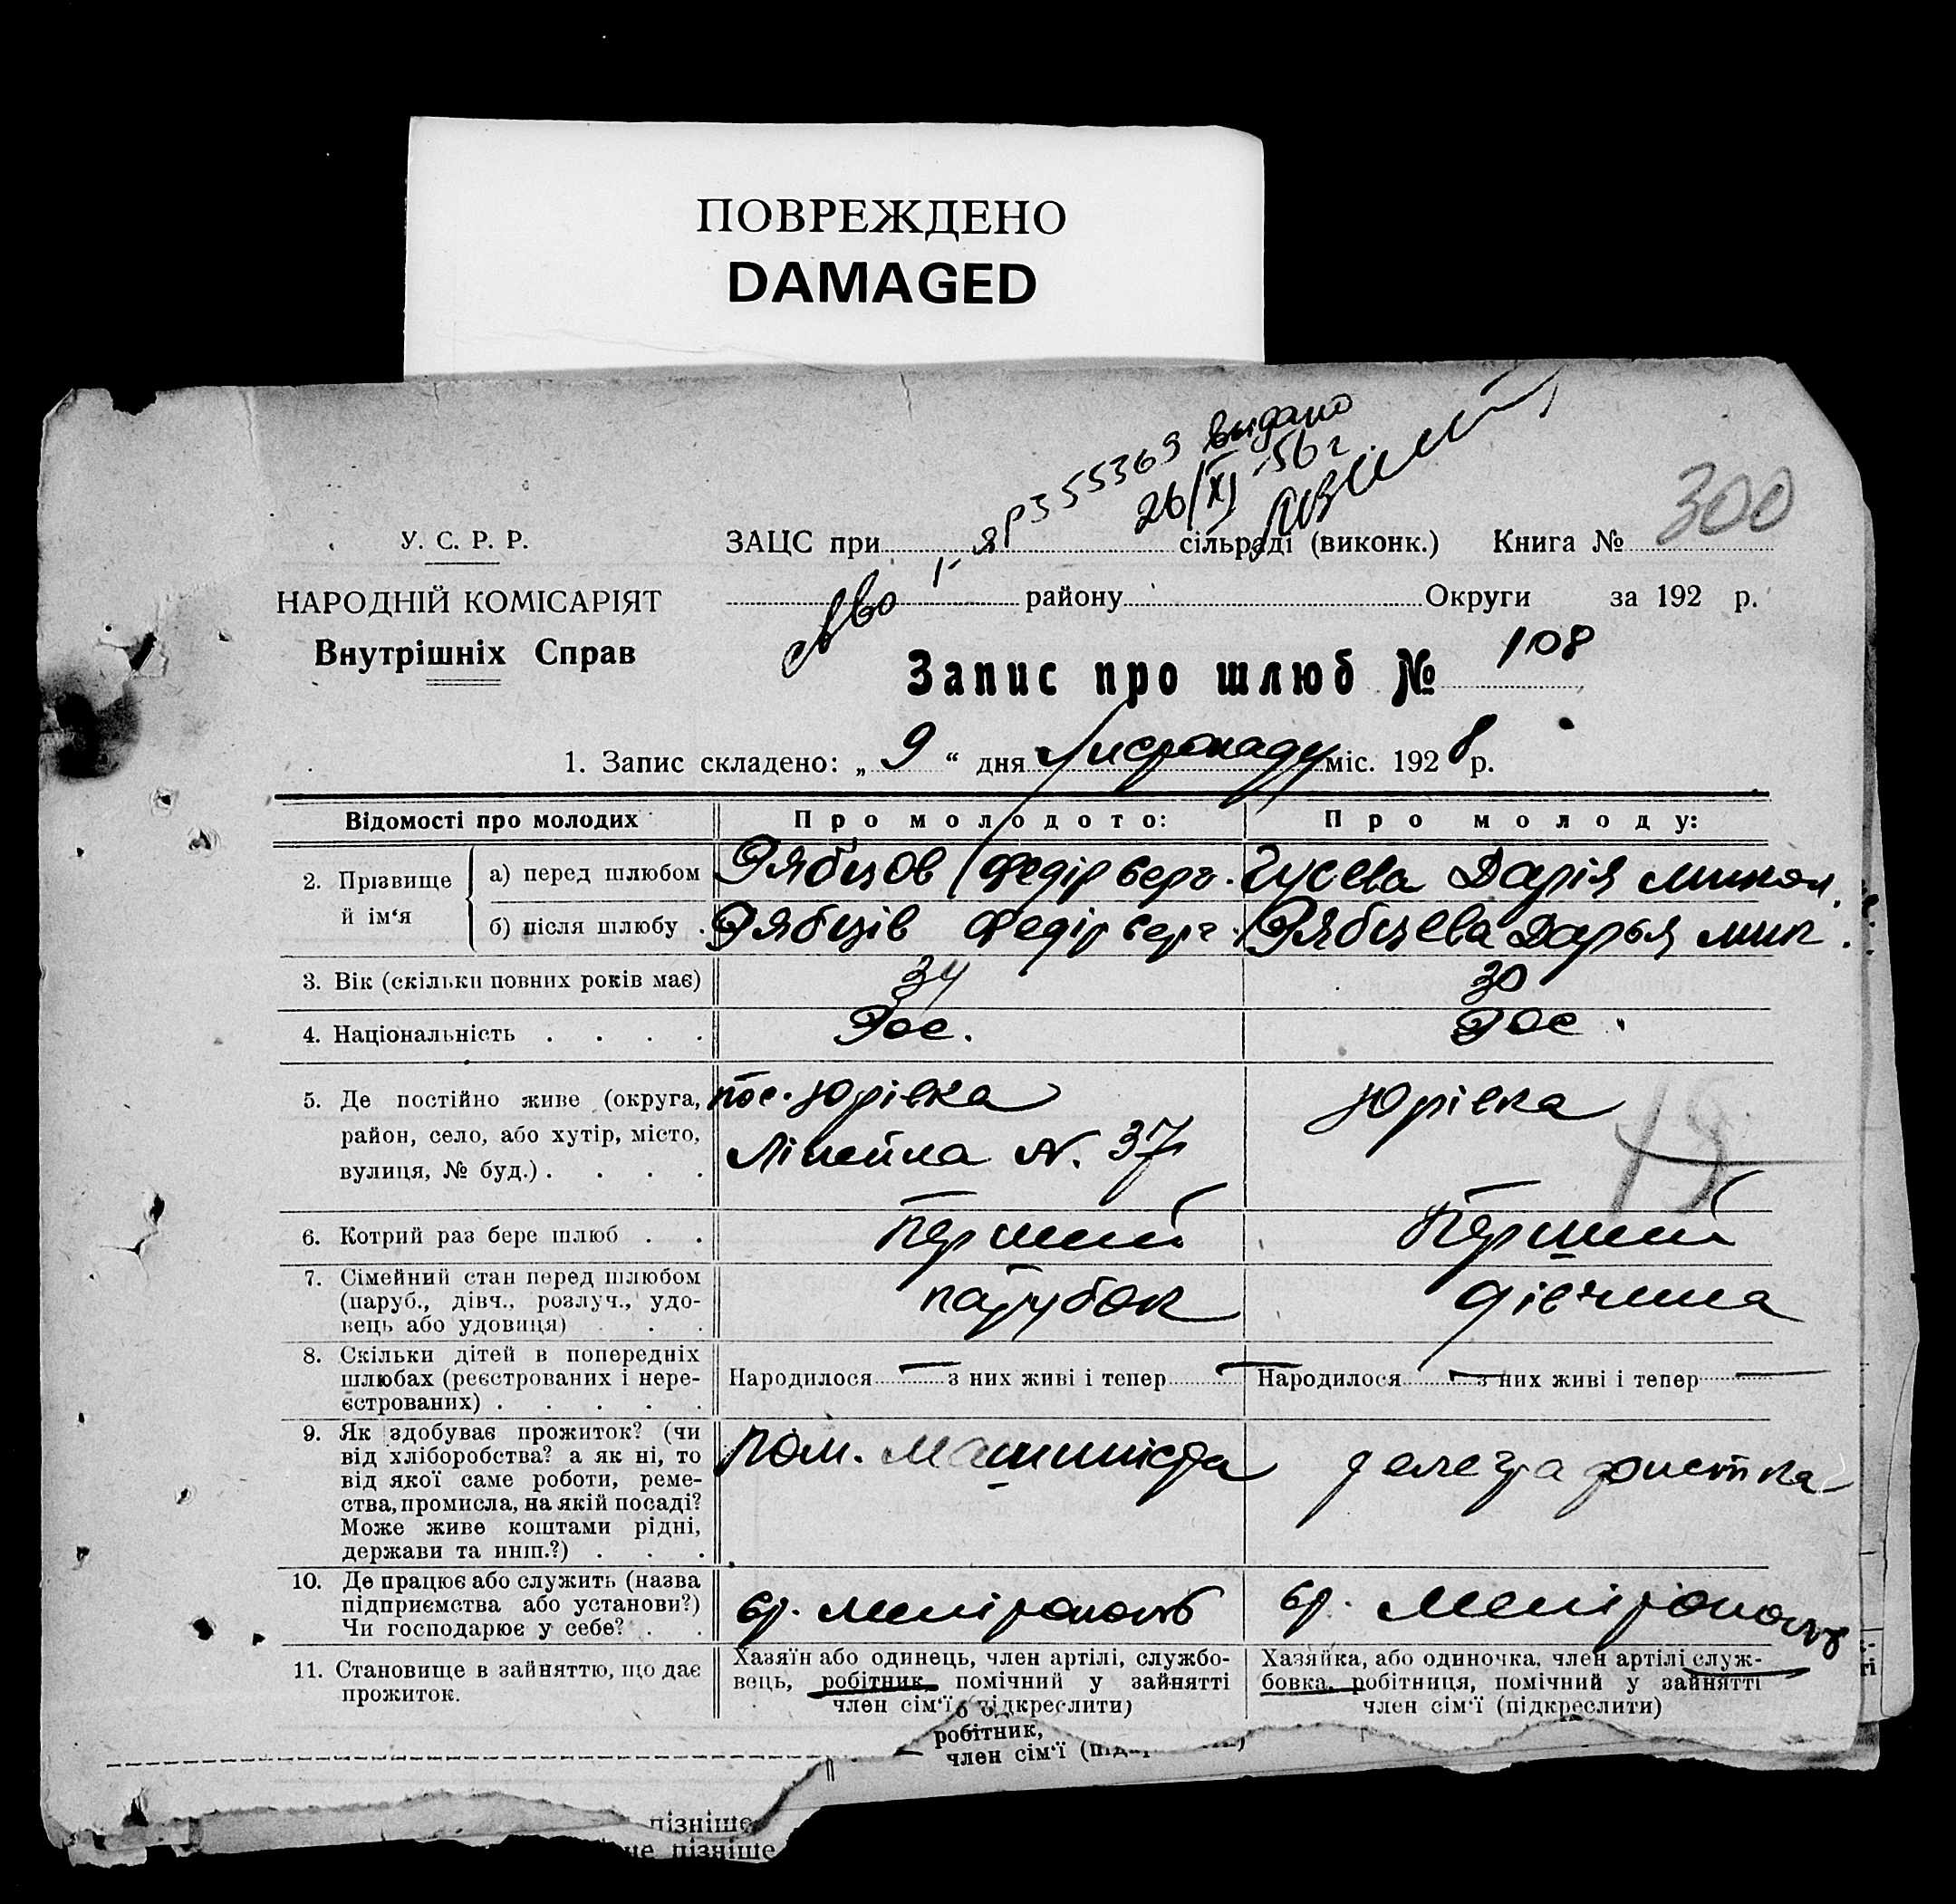 ПОВРЕЖДЕНО
DAMAGED
Св во I-ЯР 355369 выдано
26/XI-56 г.
300
У. С. Р. Р.
НАРОДНІЙ КОМІСАРІЯТ
Внутрішніх Справ
ЗАЦС при сільраді (виконк.) Книга №
району Округи за 192 р.
Запис про шлюб № 108
1. Запис складено: „ 9 “ дня Листопаду міс. 1928 р.
Відомості про молодих Про молодого: Про молоду:
2. Прізвище й ім‘я
а) перед шлюбом Рябцов Федір Серг. Гусева Дарія Микол.
б) після шлюбу Рябців Федір Серг. Рябцева Дарья Мик.
3. Вік (скільки повних років має) 34 30
4. Національність Рос. Рос.
5. Де постійно живе (округа, район, село, або хутір, місто, вулиця, № буд.)
пос. Юрівка
Лінейна N. 37
Юрівка
19
6. Котрий раз бере шлюб Перший Перший
7. Сімейний стан перед шлюбом
(паруб., дівч., розлуч., удо-
вець або удовиця)
парубок дівчина
8. Скільки дітей в попередніх
шлюбах (реєстрованих і нере-
єстрованих)
Народилося — з них живі і тепер — Народилося — з них живі і тепер —
9. Як здобуває прожиток? (чи
від хліборобства? а як ні, то
від якої саме роботи, реме-
ства, промисла, на якій посаді?
Може живе коштами рідні,
держави та инш.?)
пом. машиніста телеграфистка
10. Де працює або служить (назва
підприємства або установи?)
Чи господарює у себе?
ст. Мелітополь ст. Мелітополь
11. Становище в зайняттю, що дає
прожиток.
Хазяїн або одинець, член артілі, службо-
вець, робітник, помічний у зайнятті
член сім‘ї (підкреслити)
Хазяйка, або одиночка, член артілі служ-
бовка, робітниця, помічний у зайнятті
член сім‘ї (підкреслити)
робітник,
член сім‘ї
пізніше
пізніше